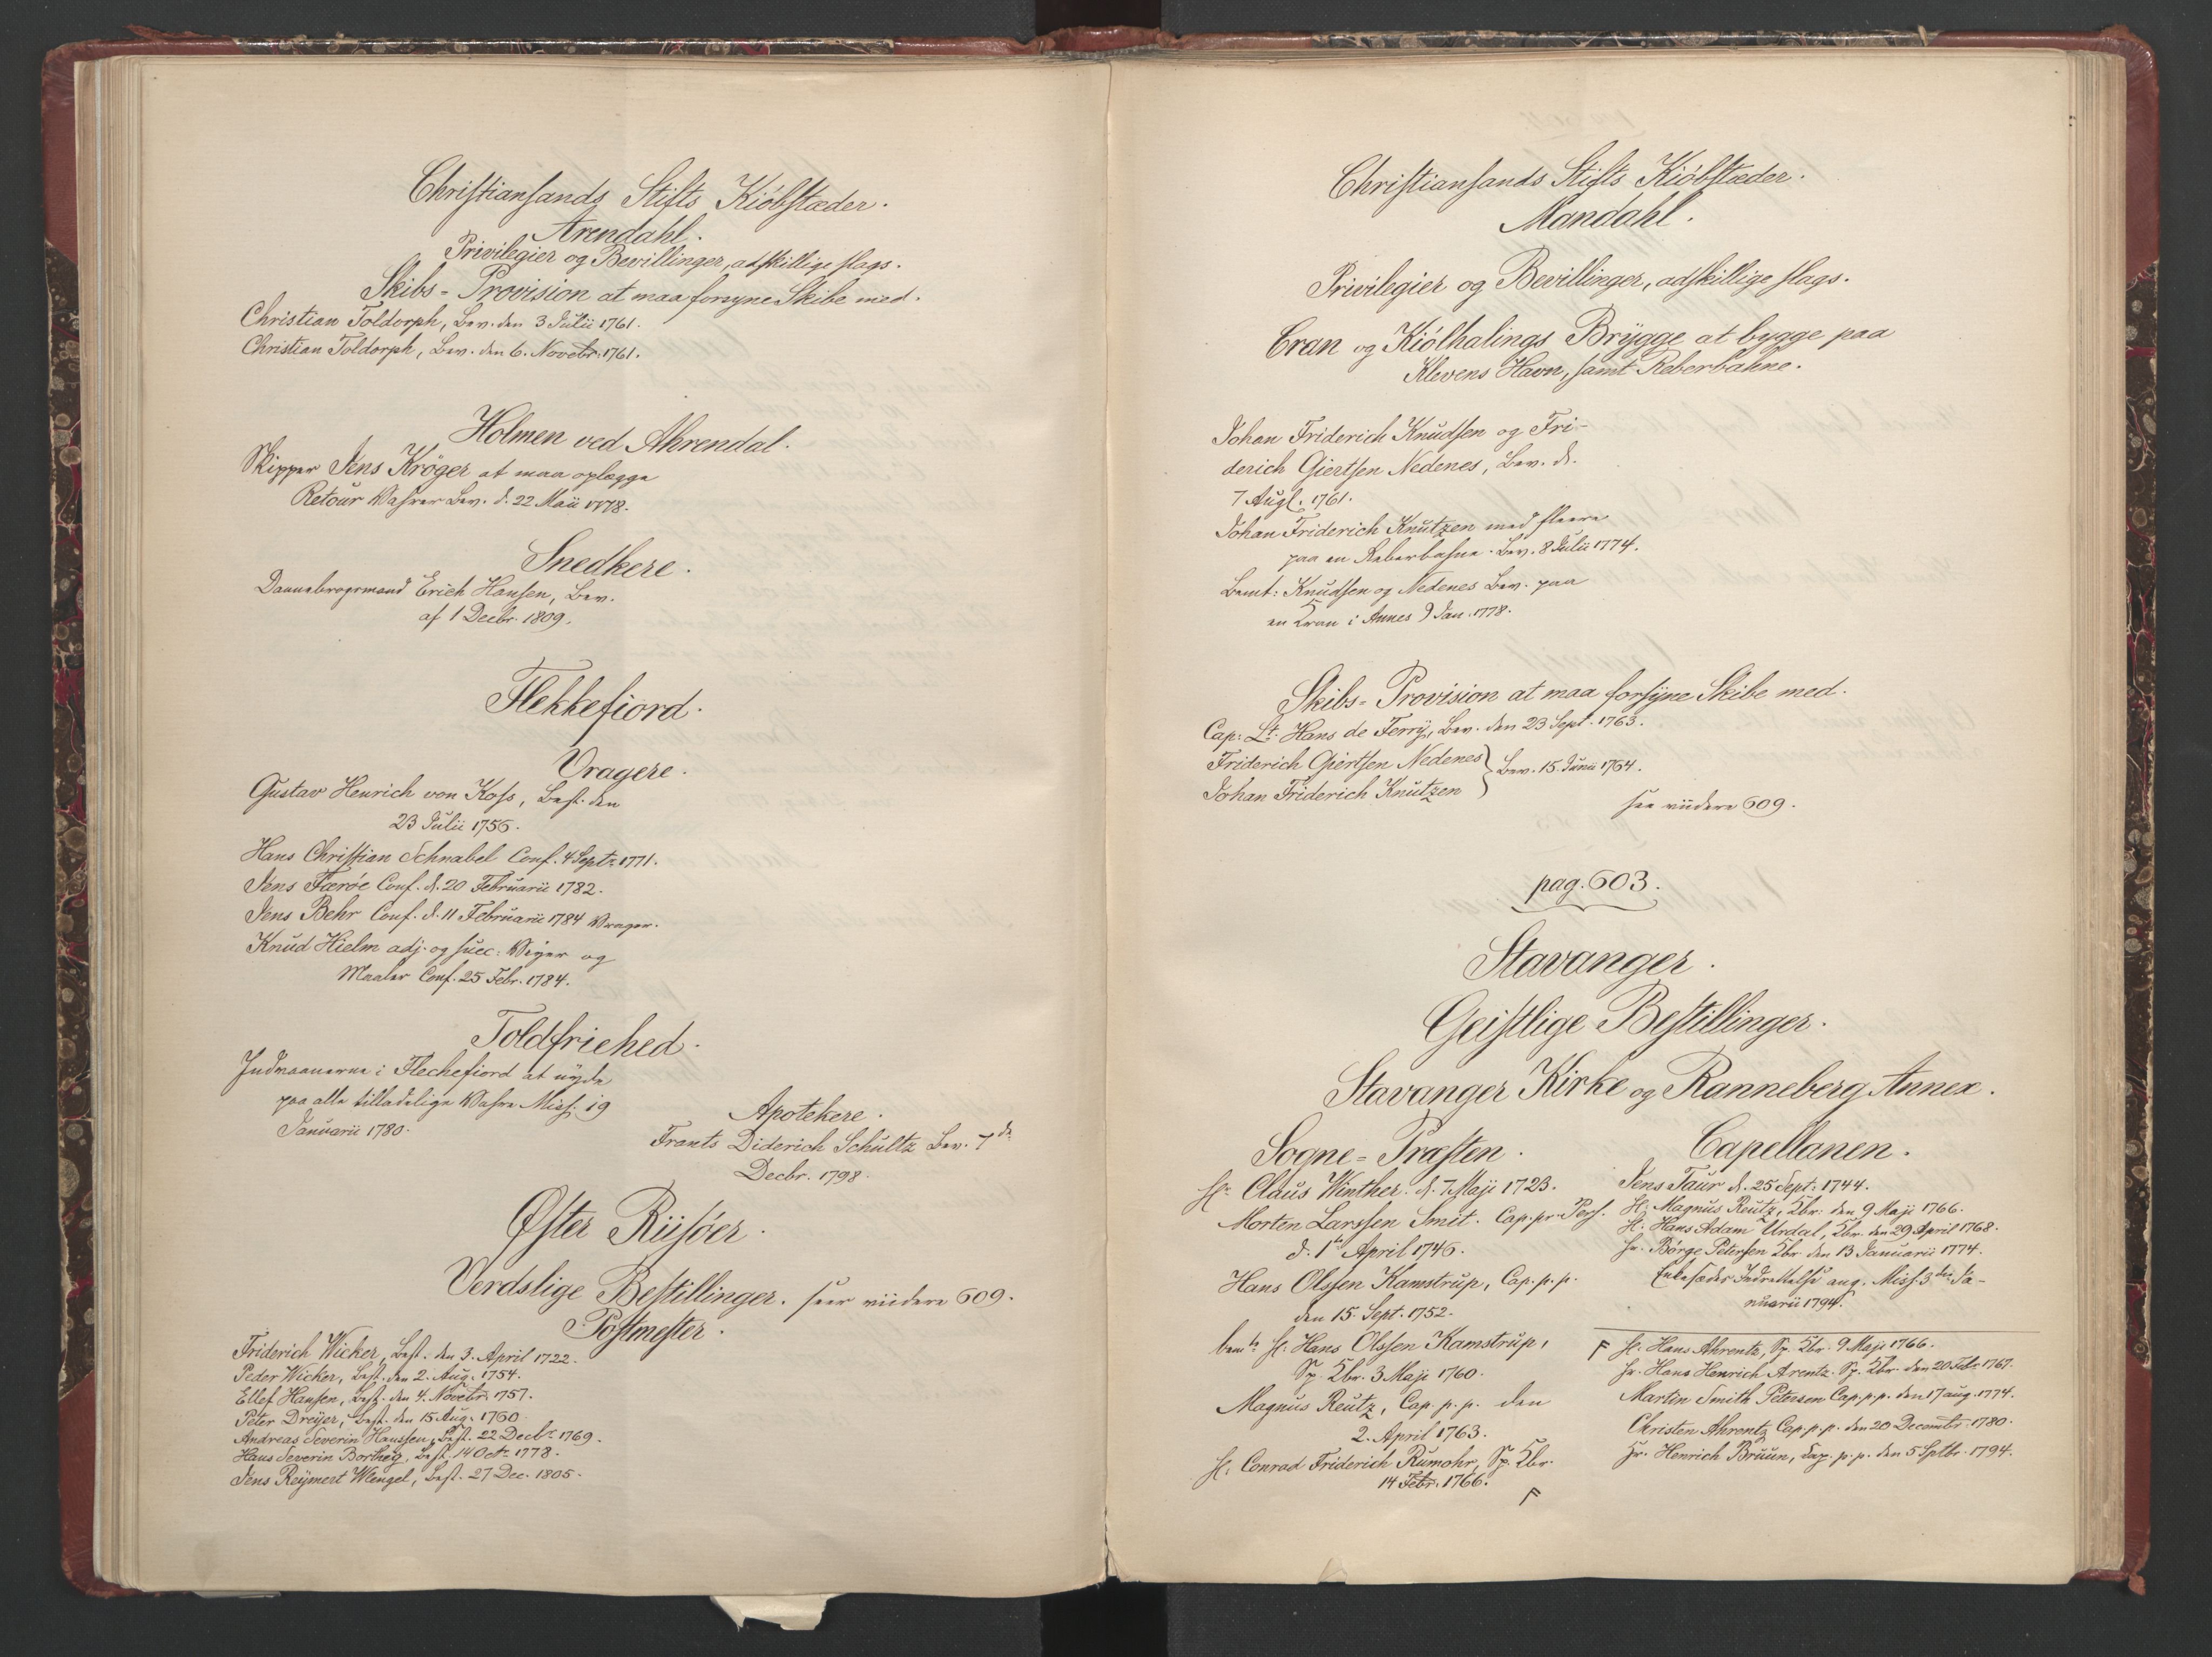 Christiansands Stifts Kiöbstæder.
Arendahl.
Privilegier og Bevillinger, adskillige slags.
Skibs-Provision at maa forsyne Skibe med.
Christian Toldorph, Bev. den 3 Julii 1761.
Christian Toldorph, Bev. den 6. Novebr. 1761.
Holmen ved Ahrendal.
Skipper Jens Kröger at maa oplægge
Retour Wahrer Bev. d. 22 Maii 1778.
Snedkere.
Dannebrogsmand Erich Hansen, Bev.
af 1 Decbr. 1809.
Flekkefiord.
Vragere.
Gustav Henrich von Koss, Best. den
23 Julii 1756.
Hans Christian Schnabel Conf. 4 Septr. 1771.
Jens Færöe Conf. d. 20 Februarii 1782.
Jens Behr Conf. d. 11 Februarii 1784 Wrager.
Knud Hielm adj. og succ: Weyer og
Maaler Conf. 25 Febr. 1784.
Toldfriehed.
Indvaanerne i Flechefiord at nyde
paa alle tilladelige Wahre Miss. 19
Januarii 1780.
Apotekere.
Frants Diderich Schultz Bev. 7de
Decbr. 1798.
Øster Riisöer.
Verdslige Bestillinger. seer viidere 609.
Postmester.
Friderich Wicker, Best. den 3. April 1722.
Peder Wicker, Best. den 2. Aug. 1754.
Ellef Hansen, Best. den 4. Novebr. 1757.
Peter Dreyer, Best. den 15 Aug. 1760.
Andreas Severin Hanssen, Best. 22 Decbr. 1769.
Hans Severin Bortheg, Best. 14 Octr. 1778.
Jens Reymert Wengel, Best. 27 Dec. 1805.
Christiansands Stifts Kiöbstæder.
Mandahl.
Privilegier og Bevillinger, adskillige slags.
Cran og Kiölhalings Brygge at bygge paa
Klevens Havn, samt Reberbahne.
Johan Friderich Knudsen og Fri-
derich Giertsen Nedenes, Bev. d.
7 Augt. 1761.
Johan Friderich Knutzen med fleere
paa en Reberbahne. Bev. 8 Julii 1774.
Bemt: Knudsen og Nedenes Bev. paa
en Cran i Annes 9 Jan. 1778.
Skibs-Provision at maa forsyne Skibe med.
Cap: Lt. Hans de Ferry, Bev. den 23 Sept. 1763.
Friderich Giertsen Nedenes } Bev. 15. Junii 1764.
Johan Friderich Knutzen
see viidere 609.
pag. 603.
Stavanger.
Geistlige Bestillinger.
Stavanger Kirke og Ranneberg Annex.
Sogne-Præsten.
Hr. Claus Winther. d. 7 Maji 1723.
Morten Larssen Smit. Cap. pr. Pers.
d. 1te April 1746.
Hans Olssen Kamstrup, Cap. p. p.
den 15. Sept. 1752.
bemte H: Hans Olssen Kamstrup,
Sp. Kbr. 3 Maji 1760.
Magnus Reutz, Cap. p. p. den
2. April 1763.
H: Conrad Friderich Rumohr, Sp. Kbr.
14 Febr. 1766.
F
Capellanen.
Jens Taur d. 25 Sept: 1744.
H: Magnus Reutz, Kbr: den 9 Maji 1766.
H: Hans Adam Urdal, Kbr. den 29 April 1768.
Hr. Börge Petersen Kbr. den 13 Januarii 1774.
Enkesædes Indrettelse ang. Miss. 3die Ja-
nuarii 1794.
F H: Hans Ahrentz, Sp. Kbr. 9 Maji 1766.
Hr. Hans Henrich Arentz Sp. Kbr. den 20 Febr. 1767.
Martin Smith Petersen Cap. p. p. den 17 aug. 1774.
Christen Ahrentz Cap. p. p. den 20 Decembr. 1780.
Hr. Henrich Bruun, Cap. p. p. den 5 Sptbr. 1794.